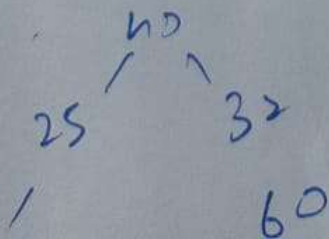 40
25 32
60